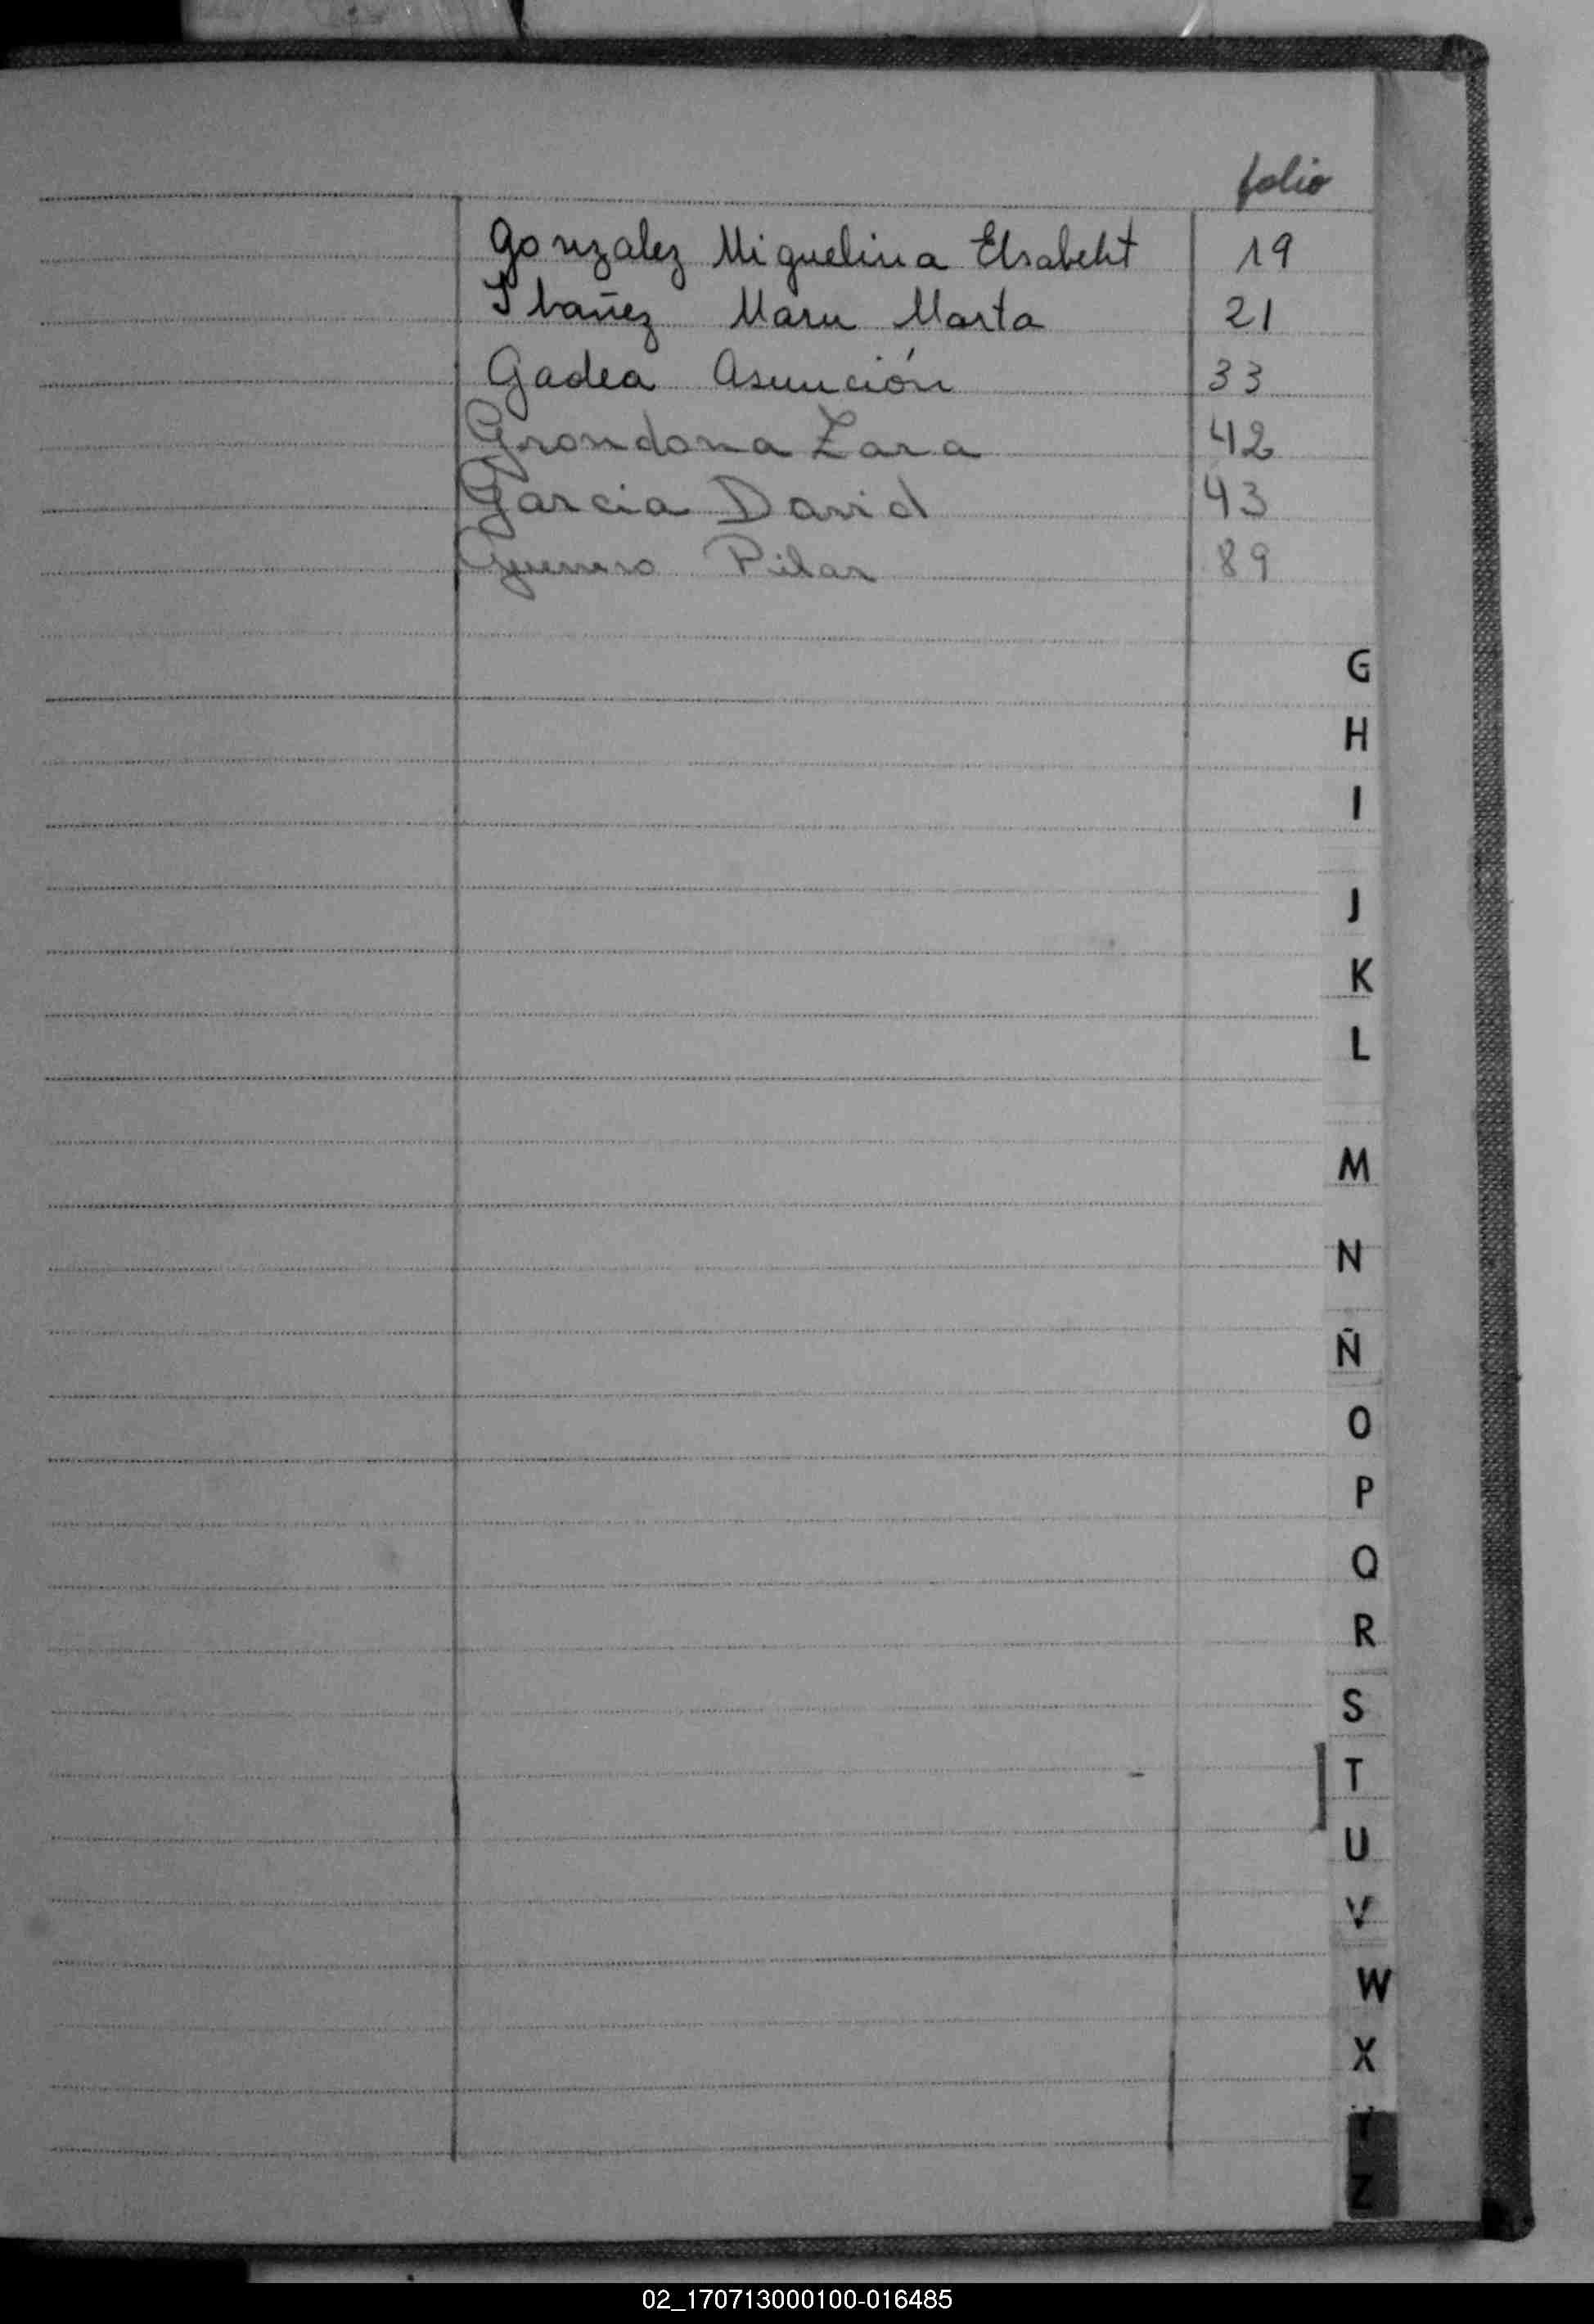 folio
Gonzalez Miguelina Elsabeht 19
Ibañez Maru Marta 21
Gadea Asunción 33
Grondona Zara 42
Garcia David 43
Guerrero Pilar 89
G
H
I
J
K
L
M
N
Ñ
O
P
Q
R
S
T
U
V
W
X
Y
Z
02_170713000100-016485